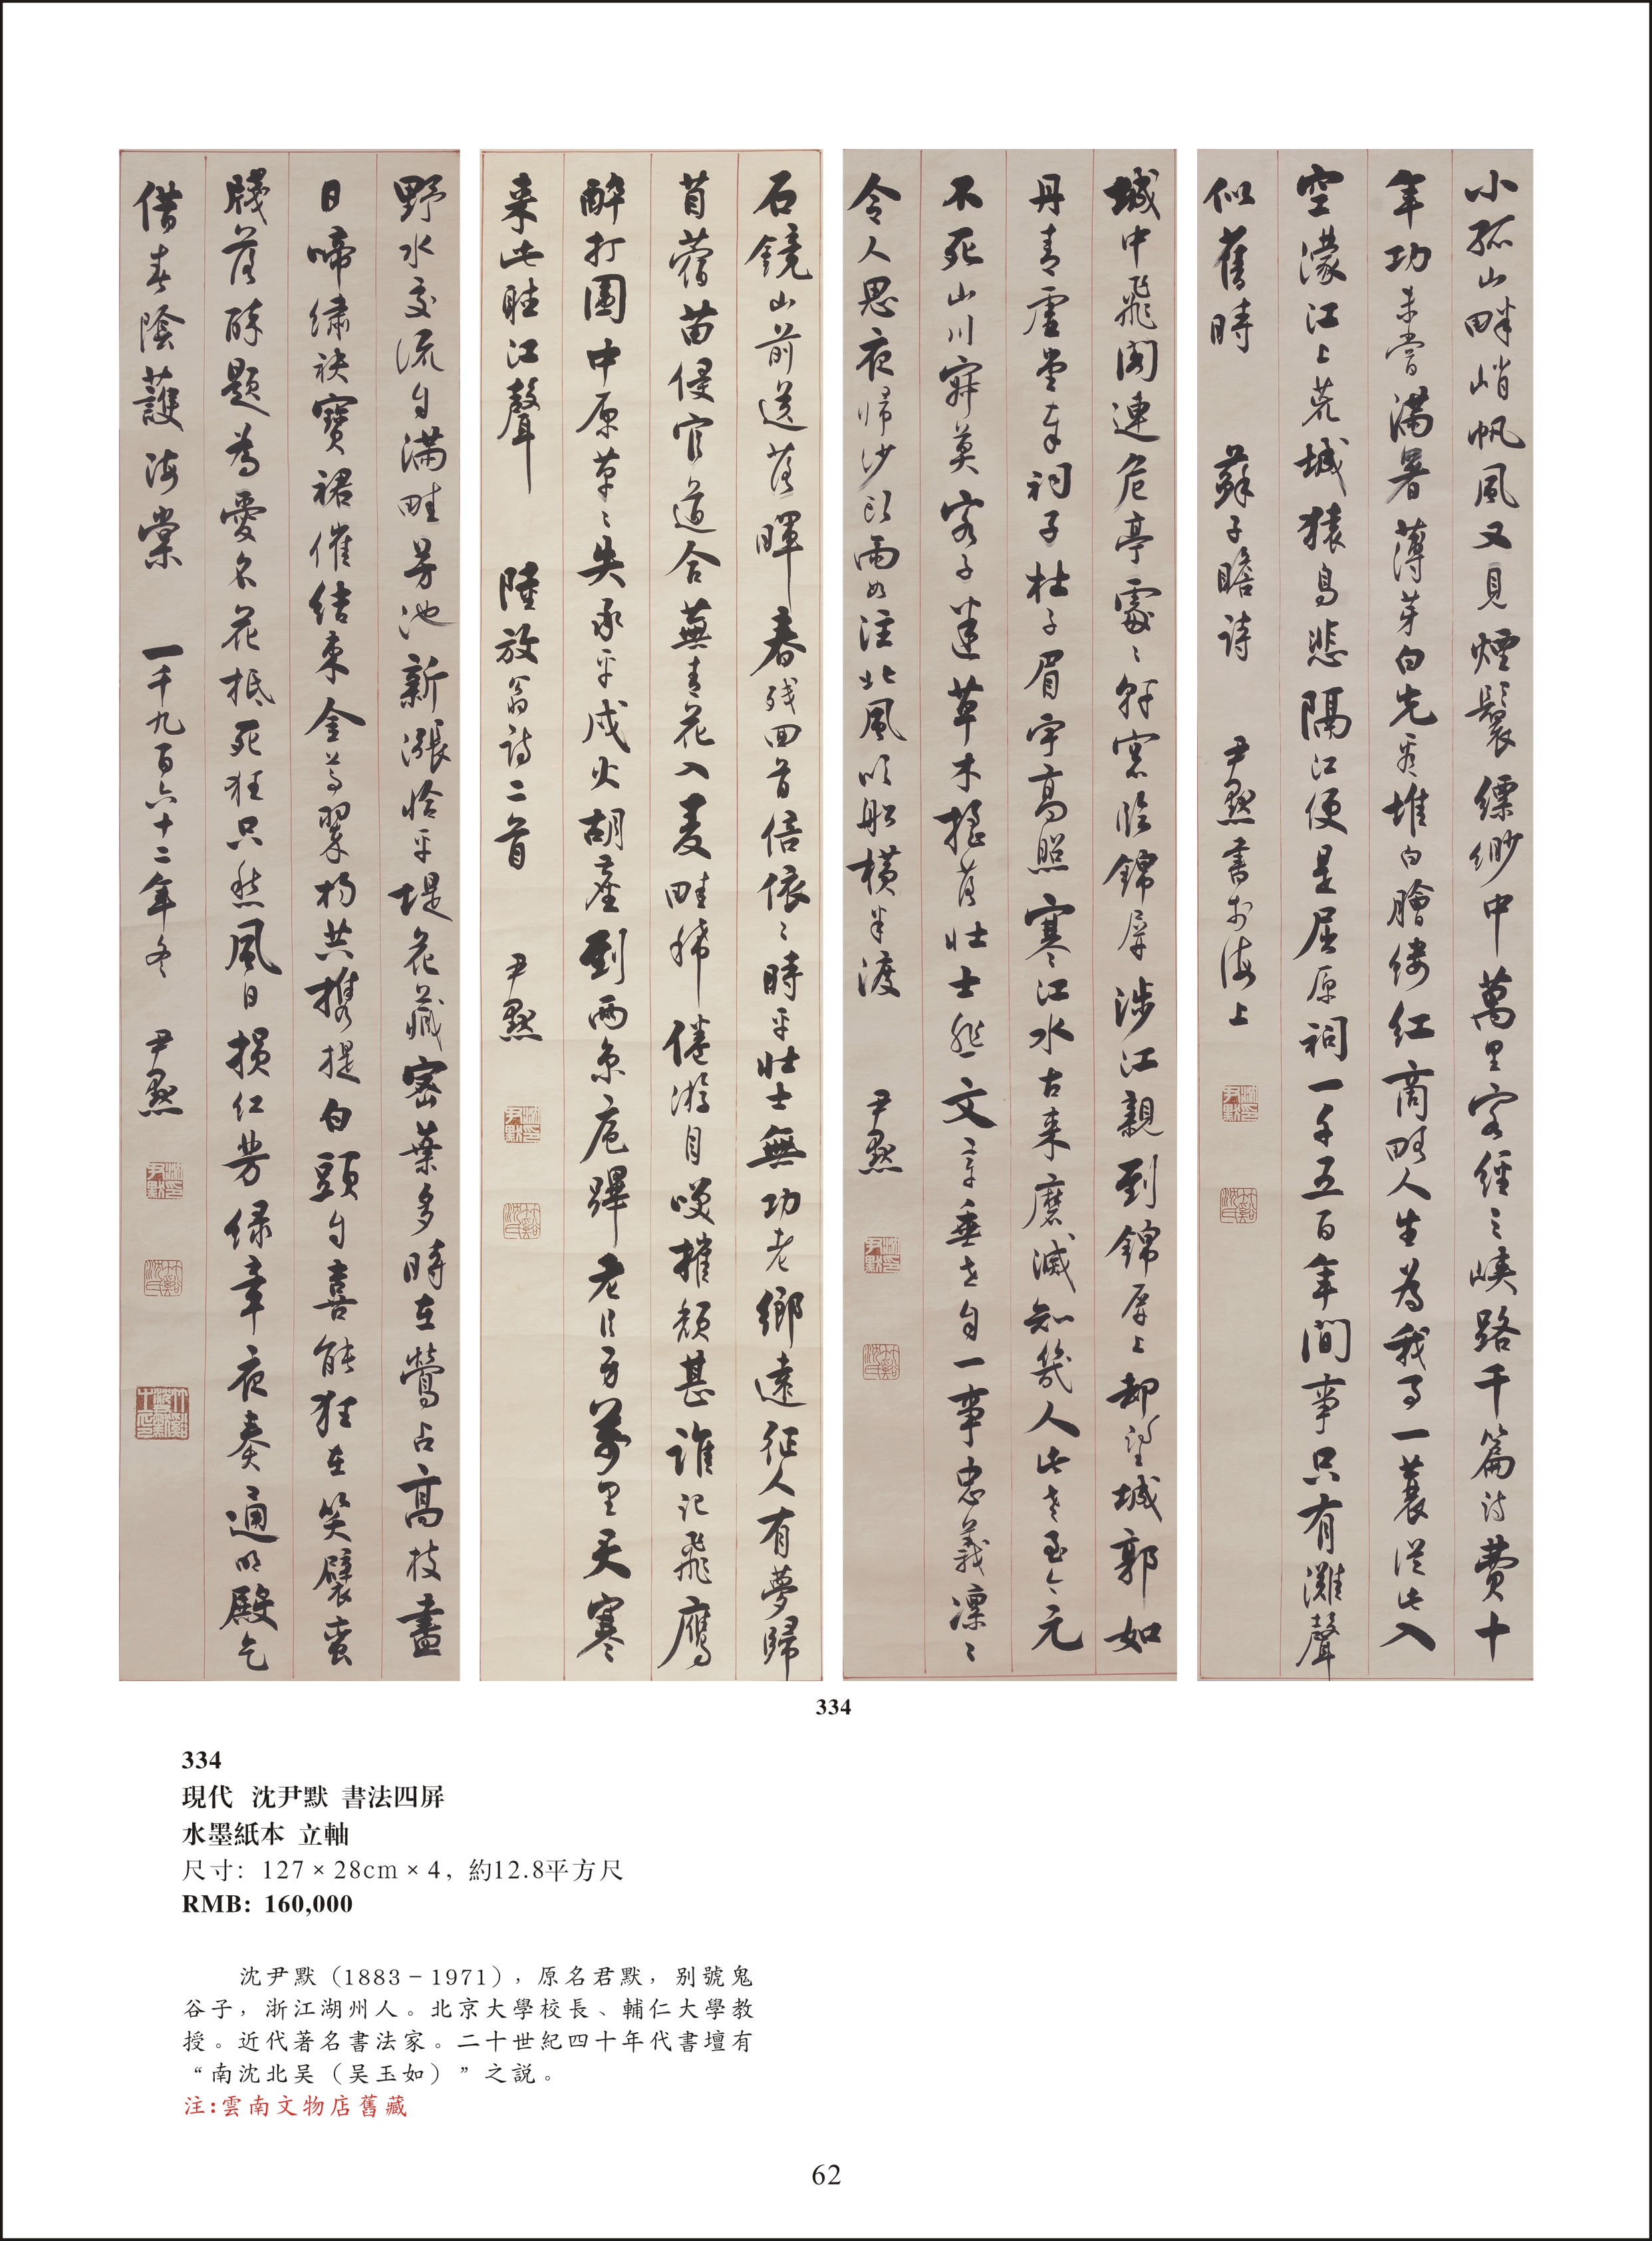 小孤山畔峭帆風又見煙鬟縹緲中萬里客經三峽路千篇詩費十
年功未嘗滿箸蓴芽白先看堆白鱠縷紅商略人生為我事一蓑從此入
空濛江上荒城猿鳥悲隔江便是屈原祠一千五百年間事只有灘聲
似舊時 蘇子瞻詩 尹默書於海上
城中飛閣連危亭處〻軒窗臨錦屏涉江親到錦屏上却望城郭如
丹青虛堂奉祠子杜子眉宇高照寒江水古來磨滅知幾人此老至今元
不死山川寂莫客子迷草木搖落壯士悲文章垂世自一事忠義凜〻
令人思夜歸沙頭雨如注北風吹船橫半渡 尹默
石鏡山前送落暉春殘回首倍依〻時平壯士無功老鄉遠征人有夢歸
苜蓿苗侵官道合蕪菁花入麥畦稀倦游自嘆摧頹甚誰記飛鷹
醉打圍中原草〻失承平戍火胡塵到兩京扈蹕老臣身萬里天寒
來此聽江聲 陸放翁詩二首 尹默
野水交流自滿畦芳池新漲恰平堤花藏密葉多時在鶯占高枝盡
日啼繡袂寶裙催結束金尊翠杓共攜提白頭自喜能狂在笑襞蠻
牋落醉題為愛名花抵死狂只愁風日損紅芳綠章夜奏通明殿乞
借春陰護海棠 一千九百六十二年冬 尹默
334
334
現代 沈尹默 書法四屏
水墨紙本 立軸
尺寸：127×28cm×4，約12.8平方尺
RMB: 160,000
沈尹默（1883－1971），原名君默，別號鬼
谷子，浙江湖州人。北京大學校長、輔仁大學教
授。近代著名書法家。二十世紀四十年代書壇有
“南沈北吴（吴玉如）”之説。
注:雲南文物店舊藏
62